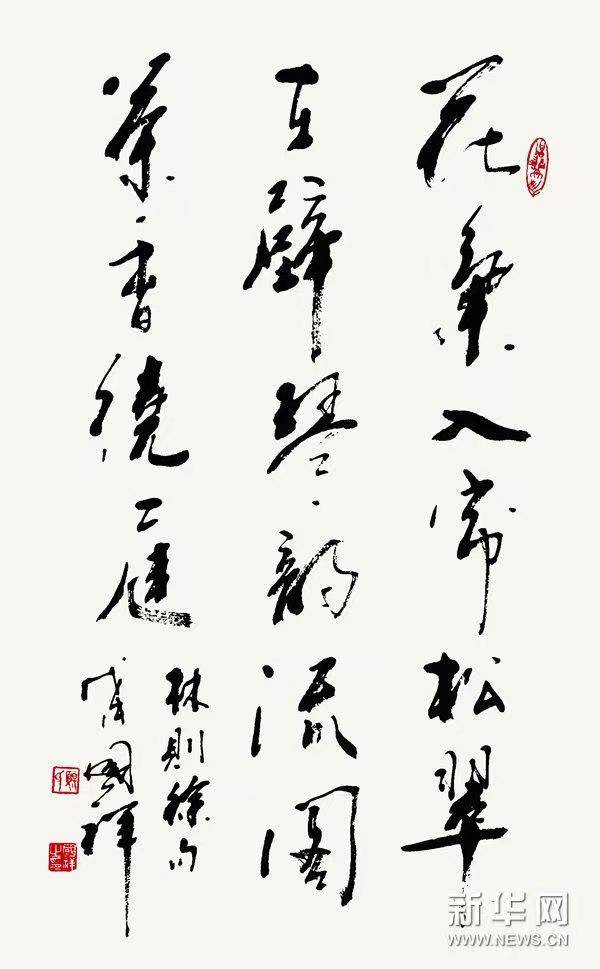 花氣入帘松翠
在壁琴韵流阁
茶香繞庭
林则徐句
國祥
新华网
WWW.NEWS.CN